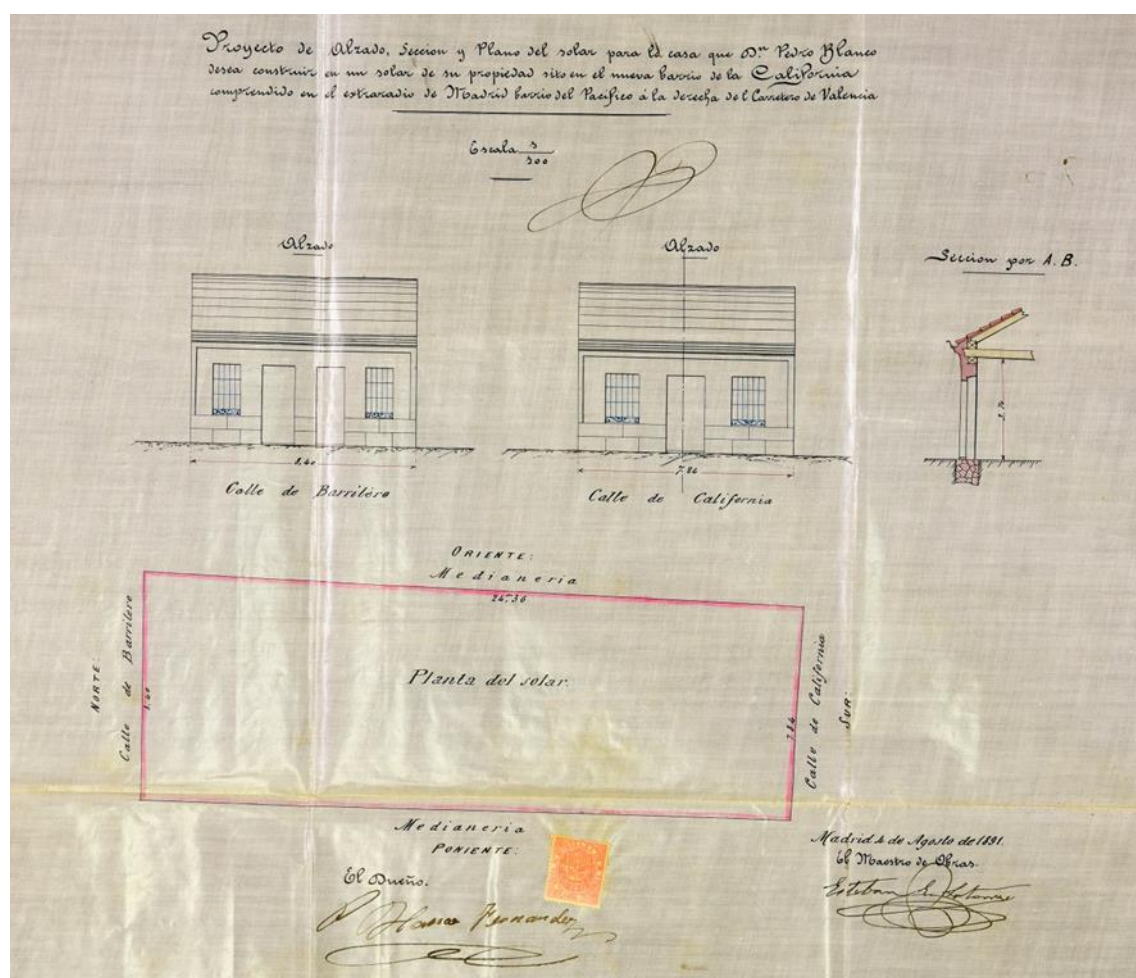 Proyecto de Alzado, Seccion y Plano del solar para la casa que Dⁿ Pedro Blanco
desea construir en un solar de su propiedad sito en el nueva barrio de la California
comprendido en el estraradio de Madrid barrio del Pacifico á la derecha de l Carretero de Valencia
Escala 1/100
Alzado
Alzado
Seccion por A. B.
3,70
8,40
7,84
Calle de Barrilero
Calle de California
ORIENTE:
Medianeria
24,36
NORTE:
Calle de Barrilero
8,40
Planta del solar.
7,84
Calle de California
SUR:
Medianeria
PONIENTE:
El Dueño.
Madrid 4 de Agosto de 1891.
El Maestro de Obras.
P Blanco Fernandez
Esteban